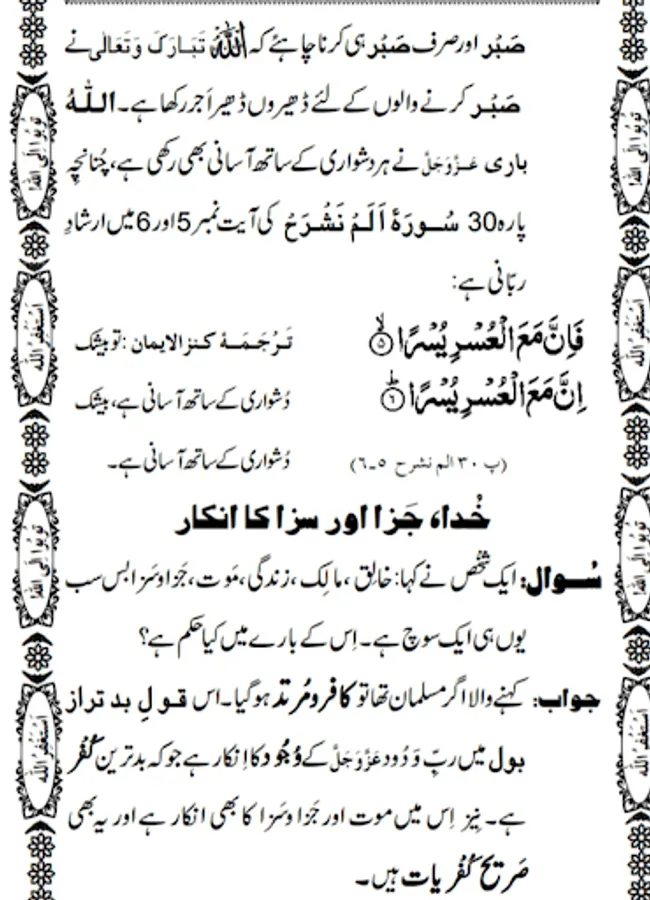 صَبْر اور صرف صَبْر ہی کرنا چاہئے کہ اللہ تَبَارَکَ وَتَعَالٰی نے
صَبْر کرنے والوں کے لئے ڈھیروں ڈھیر اَجر رکھا ہے۔ اللہ
باری عَزَّوَجَلَّ نے ہر دشواری کے ساتھ آسانی بھی رکھی ہے، چُنانچِہ
پارہ 30 سُورَۃُ اَلَمْ نَشْرَحْ کی آیت نمبر 5 اور 6 میں ارشادِ
ربّانی ہے:
فَاِنَّ مَعَ الْعُسْرِ یُسْرًا ۙ﴿۵﴾ تَرجَمَۂ کنز الایمان: تو بیشک
اِنَّ مَعَ الْعُسْرِ یُسْرًا ؕ﴿۶﴾ دُشواری کے ساتھ آسانی ہے، بیشک
(پ ۳۰ الم نشرح ۵۔۶) دُشواری کے ساتھ آسانی ہے۔
خُدا، جَزا اور سزا کا انکار
سُوال: ایک شخص نے کہا: خالِق، مالِک، زندگی، مَوت، جَزا و سَزا بس سب
یوں ہی ایک سوچ ہے۔ اِس کے بارے میں کیا حکم ہے؟
جواب: کہنے والا اگر مسلمان تھا تو کافر و مُرتد ہو گیا۔ اس قولِ بدتر از
بول میں ربِّ وَدُود عَزَّوَجَلَّ کے وُجُود کا اِنکار ہے جو کہ بدترین کُفْر
ہے۔ نیز اِس میں موت اور جَزا و سَزا کا بھی انکار ہے اور یہ بھی
صَریح کُفْریات ہیں۔
تُوبُوْا اِلَی اللہ!
اَسْتَغْفِرُ اللہ
تُوبُوْا اِلَی اللہ!
اَسْتَغْفِرُ اللہ
تُوبُوْا اِلَی اللہ!
اَسْتَغْفِرُ اللہ
تُوبُوْا اِلَی اللہ!
اَسْتَغْفِرُ اللہ